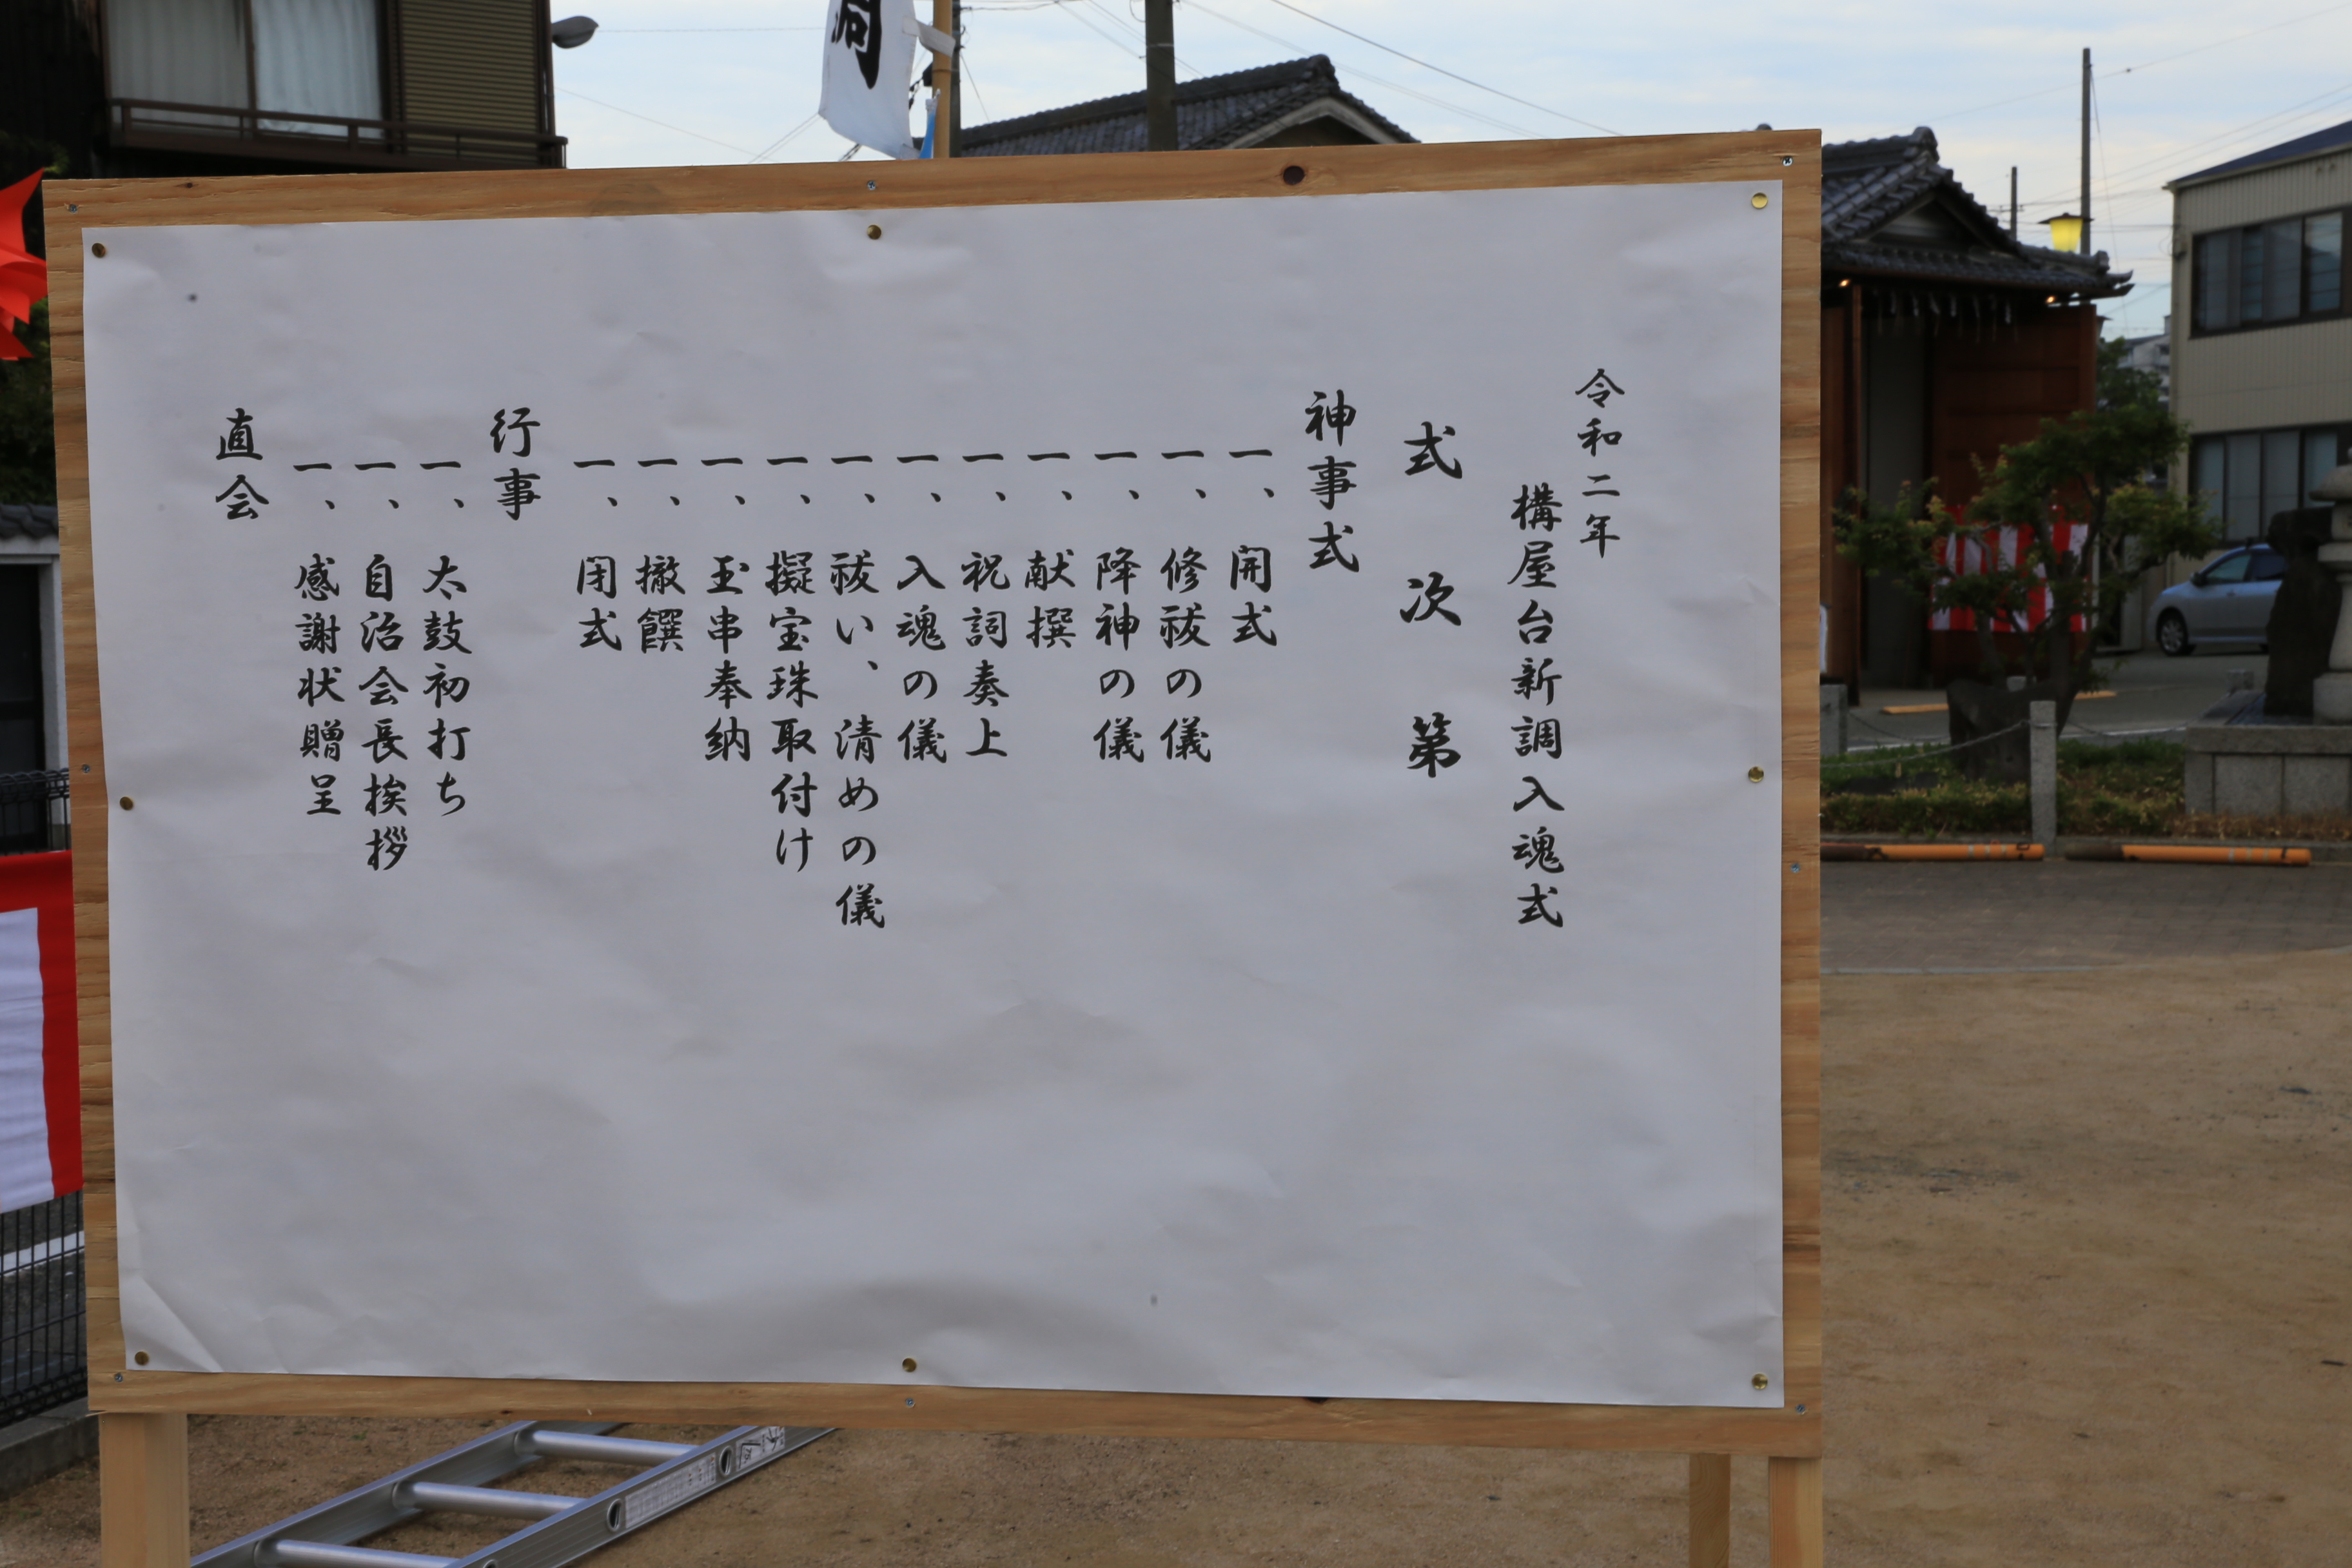 令和二年
構屋台新調入魂式
式次第
神事式
一、開式
一、修祓の儀
一、降神の儀
一、献撰
一、祝詞奏上
一、入魂の儀
一、祓い、清めの儀
一、擬宝珠取付け
一、玉串奉納
一、撤饌
一、閉式
行事
一、太鼓初打ち
一、自治会長挨拶
一、感謝状贈呈
直会